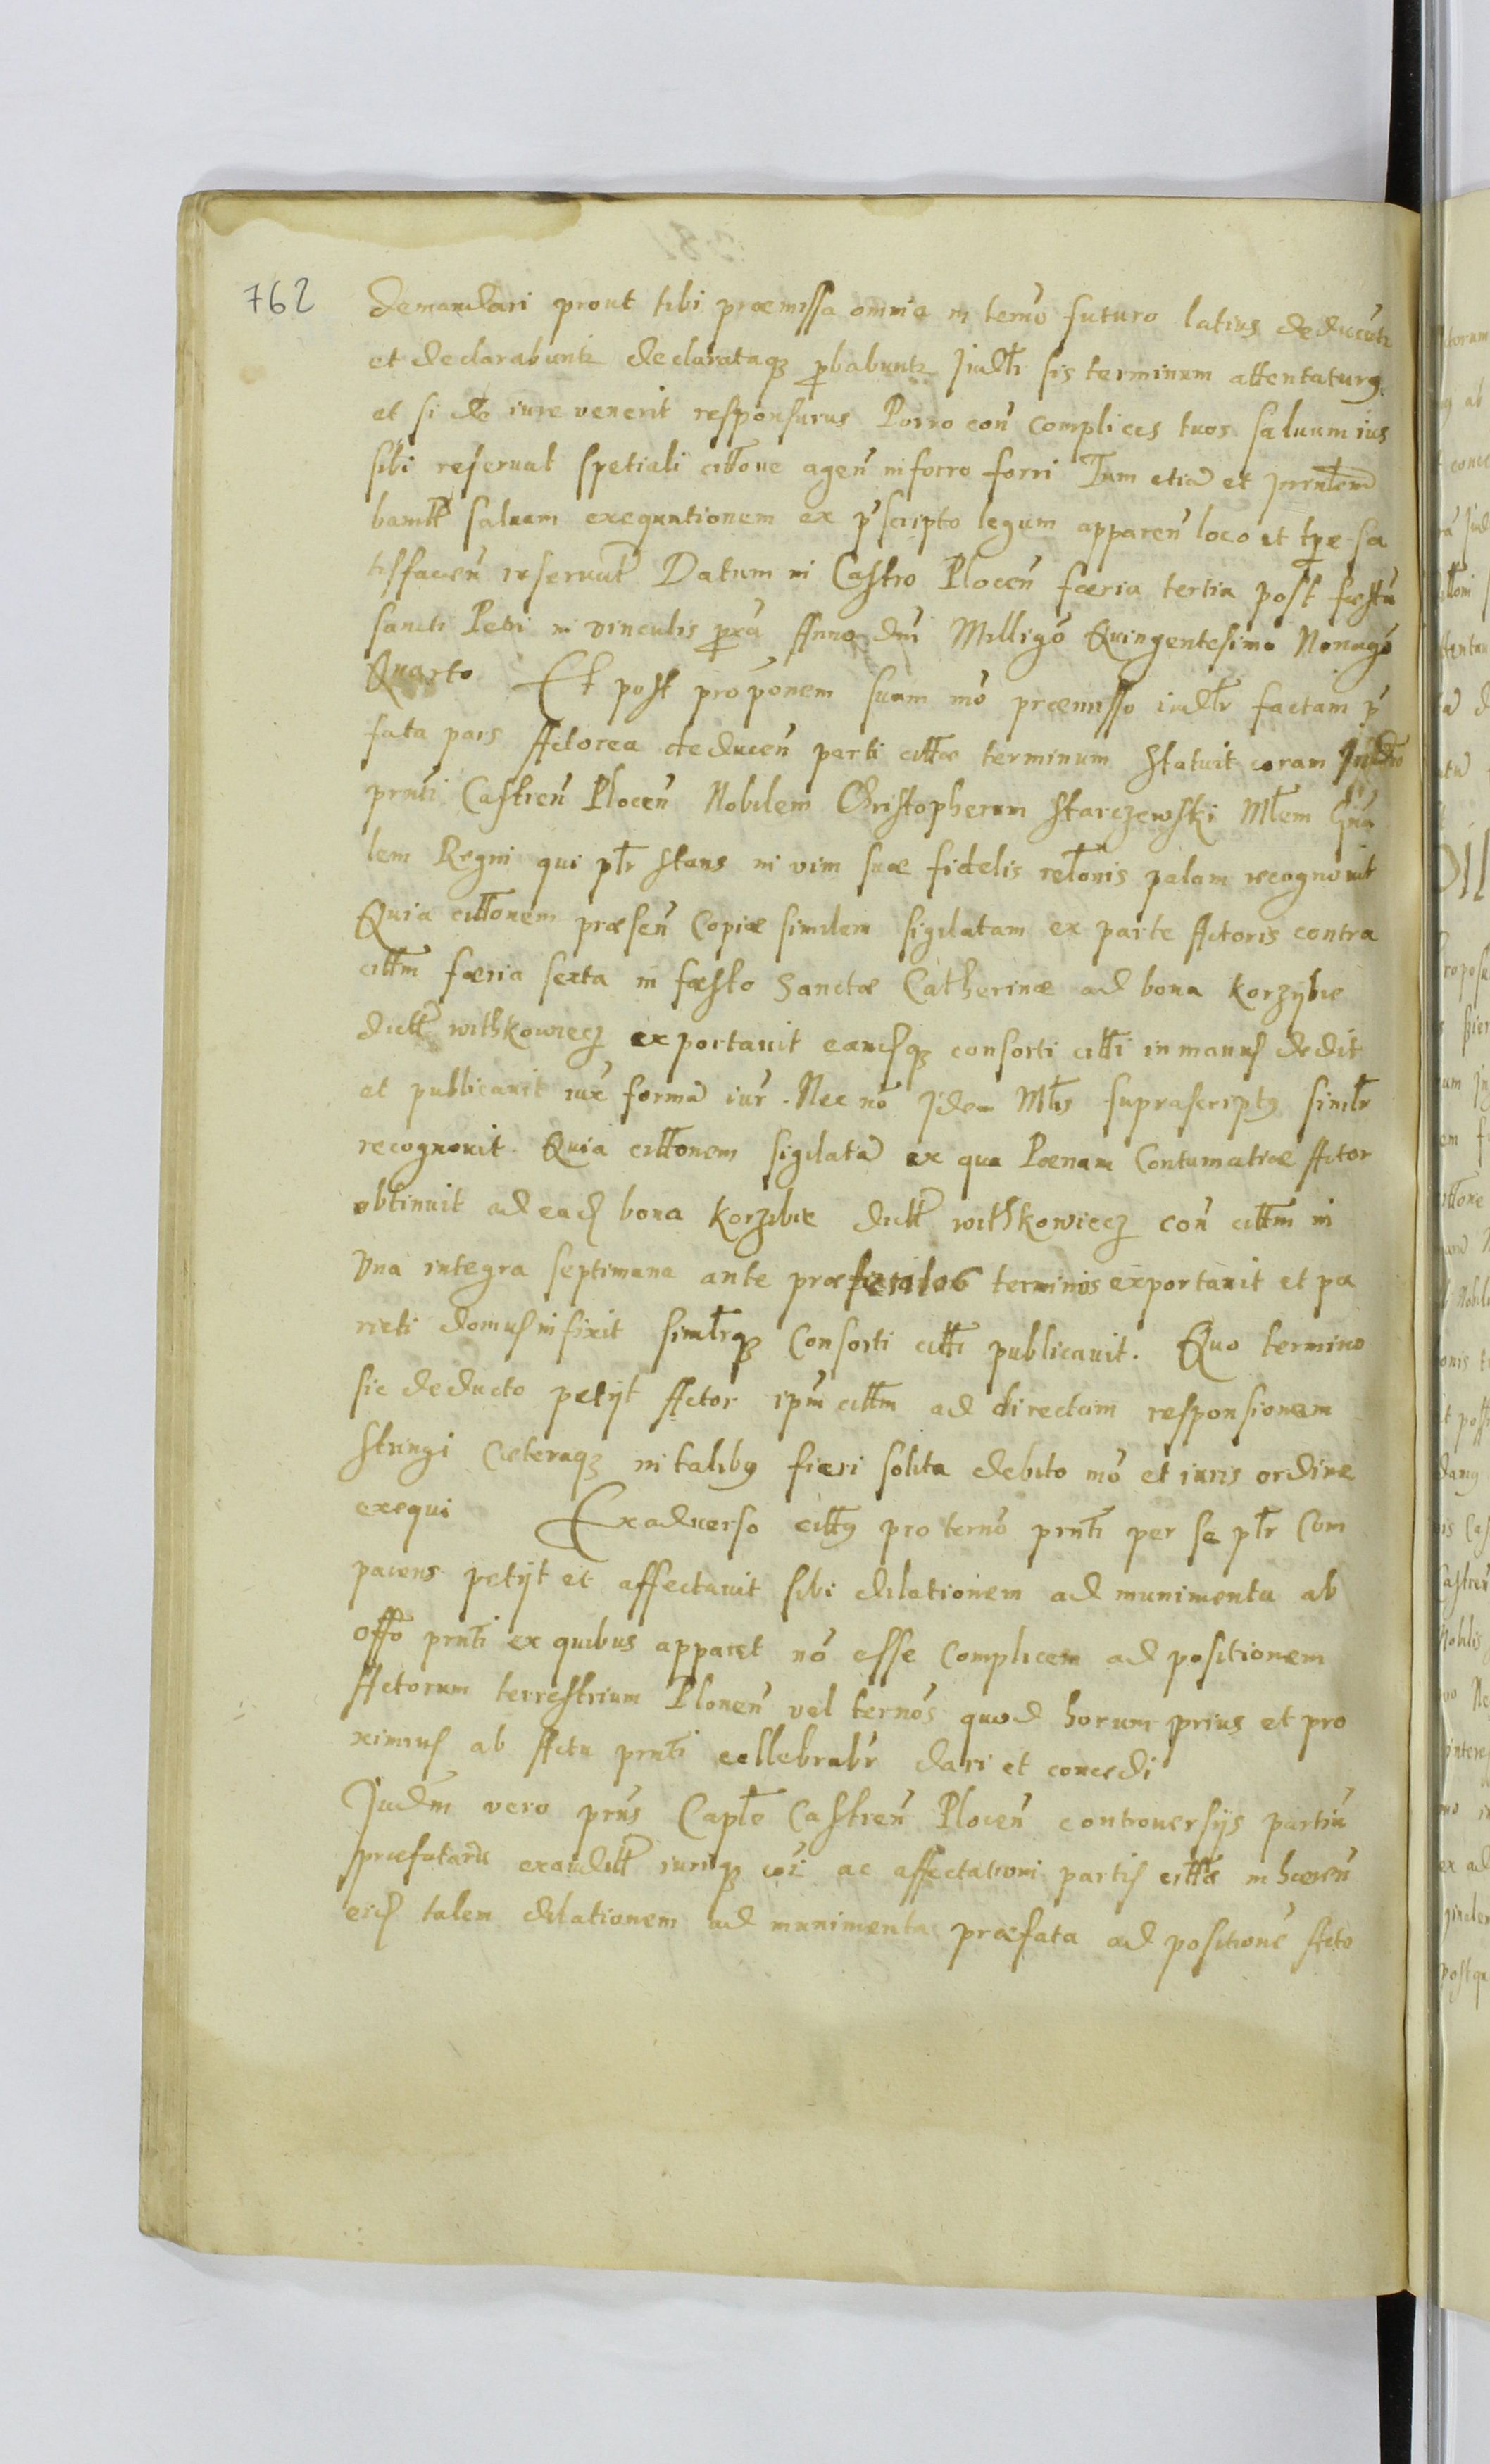 762
demandari prout tibi præmissa omnia in termō futuro latius deducētr
et declarabuntr declarataqʒ ꝓbabuntr Judlr sis terminum attentaturꝯ
et si de iure venerit responsurus Porro con̄ complices tuos saluum ius
sibi reseruat spetiali citt̄one agen̄ in forro forri Tum etiā et
salvam exequutionem ex p̄scripto legum apparen̄ loco et tp̄e sa
tisfacien̄ reseruat Datum in Castro Plocen̄ færia tertia post fæstū
sancti Petri in vinculis ꝓxā Anno dnī Milligō Quingentesimo Nonagō
Quarto Et post proponem suam mō præmisso iudlr factam p̄
fata pars Actorea deducen̄ parti citt̄æ terminum statuit coram Judīo
prntī Castren̄ Plocen̄ Nobilem Christopherum Starczewski Mlem Gn̄a
lem Regni qui plr stans in vim suæ fidelis relōnis palam recognouit
Quia citt̄onem præsen̄ Copiæ similem sigilatam ex parte Actoris contra
citt̄m færia sexta in fæsto Sanctæ Catherinæ ad bona Korzybie
dictt̄ withkowiecz exportauit eandqʒ consorti citt̄i in manus dedit
et publicauit iux̄ formā iur̄. Nec nō Idem Mlis suprascriptꝯ simlr
recognouit. Quia citt̄onem sigilatā ex qua Poenam Contumatiæ Actor
obtinuit ad ead bona Korzibie dictt̄ withkowiecz con̄ citt̄m in
Vna integra septimana ante præ terminos exportauit et pa
rieti domus infixit simlrqʒ Consorti citt̄i publicauit. Quo termino
sic deducto petijt Actor ipm̄ citt̄m ad directam responsionem
stringi cæteraqʒ in talibꝯ fieri solita debito mō et iuris ordine
exequi Exaduerso citt̄ꝯ pro termō prntī per se plr Com
parens petijt et affectauit sibi dilationem ad munimenta ab
offō prntī ex quibus apparet nō esse complicem ad positionem
Actorum terrestrium Plonen̄ vel ternōs quod horum prius et pro
ximius ab Actu prntī cellebrabr̄ dari et concedi
Judm̄ vero prn̄s Caplē Castren̄ Plocen̄ controuersijs partiū
præfatarū exauditt̄ iuriqʒ cōi ac affectationi partis citt̄æ inhæren̄
eid talem dilationem ad munimenta præfata ad positionē Acto